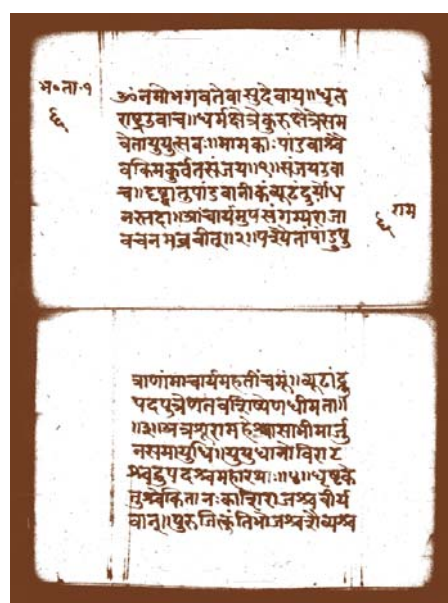 भ॰ता॰१
६
ॐनमोभगवतेवासुदेवाय॥धृत
राष्ट्रउवाच॥धर्मक्षेत्रेकुरुक्षेत्रेसम
वेतायुयुत्सवः॥मामकाःपांडवाश्चै
वकिमकुर्वतसंजय॥१॥संजयउवा
च॥दृष्ट्वातुपांडवानीकंव्यूढंदुर्योध
नस्तदा॥आचार्यमुपसंगम्यराजा
वचनमब्रवीत्॥२॥पश्यैतांपांडुपु
राम
६
त्राणांमाचार्यमहतींचमूं॥व्यूढांद्रु
पदपुत्रेणतवशिष्येणधीमता॥
॥३॥अत्रशूरामहेश्वासाभीमार्जु
नसमायुधि॥युयुधानोविराट
श्चद्रुपदश्चमहारथाः॥४॥धृष्टके
तुश्चेकितानःकाशिराजश्चवीर्य
वान्॥पुरुजित्कुंतिभोजश्चशैब्यश्च